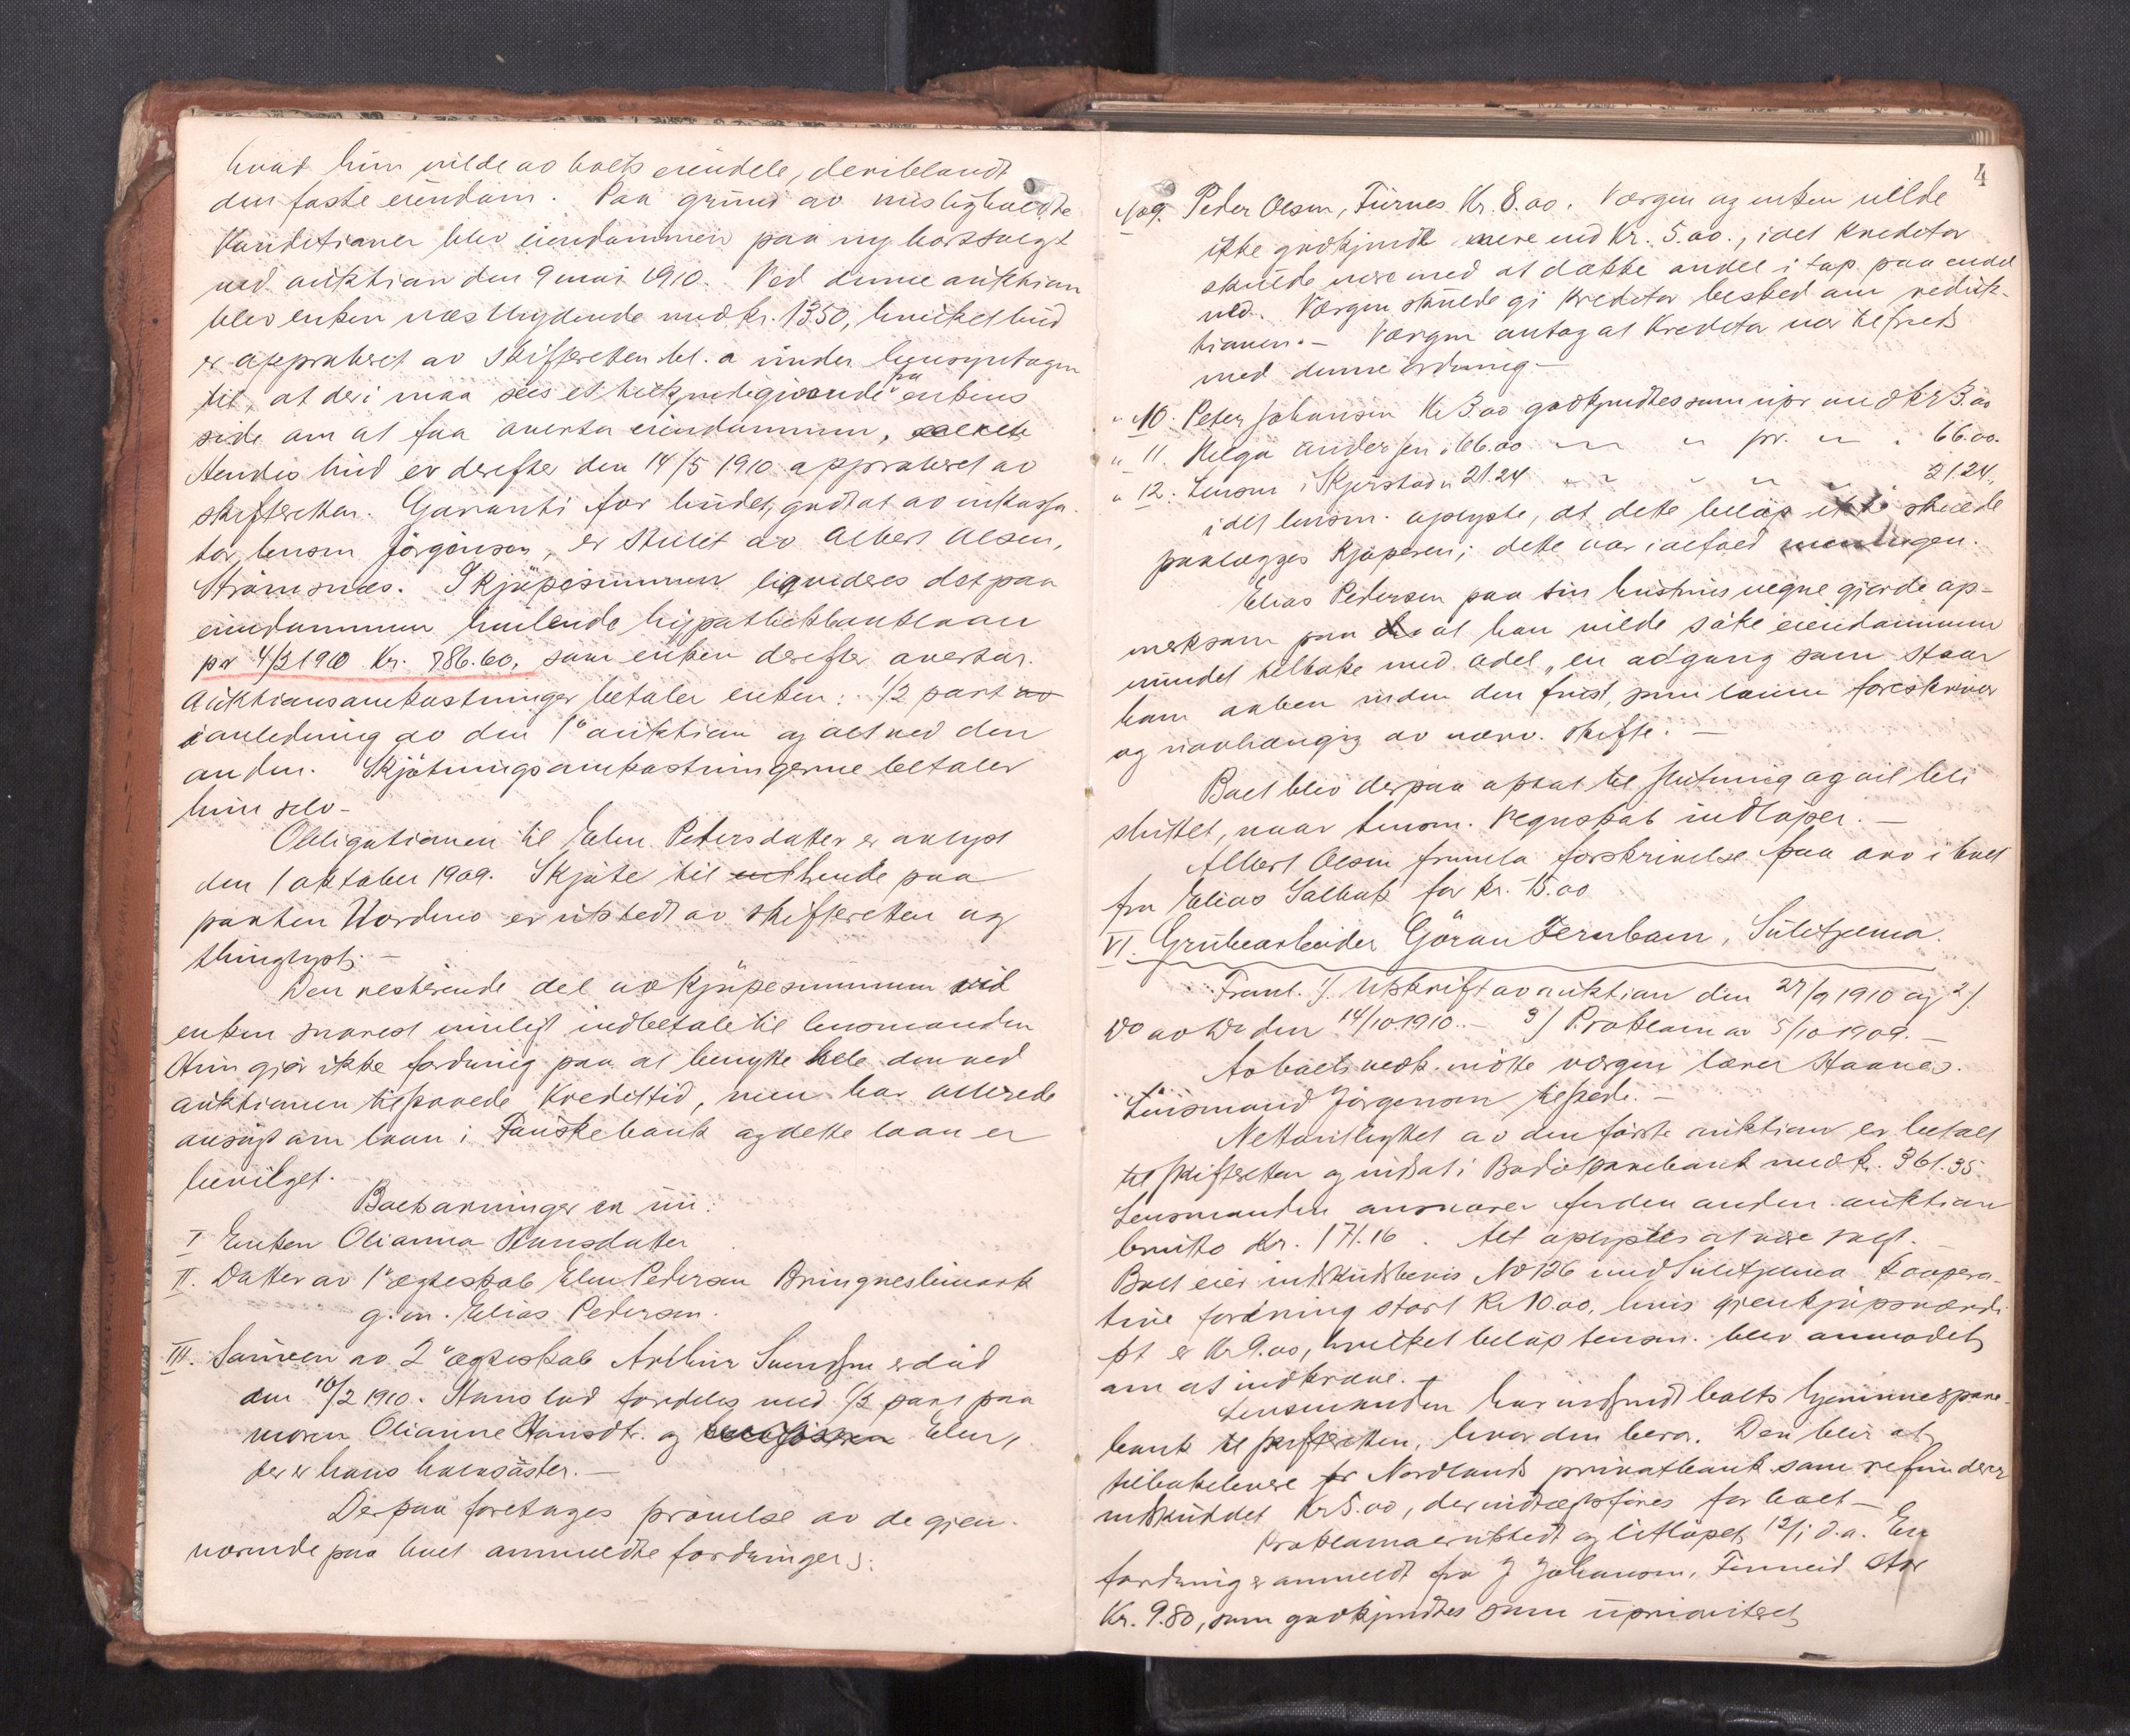 hvad hun vilde av boets eiendele, deriblandt
den faste eiendom. Paa grund av misligholdte
Konditioner blev eiendommen paa ny bortsolgt
ved auktion den 9 mai 1910. Ved denne auktion
blev enken næstbydende med kr. 1350, hvilket bud
er approberet av skifteretten bl. a under hensyntagen
til, at der i maa sees et tilkjendegivende fra enkens
side om at faa overta eiendommen,
Hendes bud er derefter den 14/5 1910 approberet av
skifteretten. Garanti for budet, godtat av inkassa-
tor, lensm Jørgensen, er stillet av Albert Olsen,
Strømsnes. I kjøpesummen liqvideres det paa
eiendommen heilende hypothekbanklaan
pr 4/3 1910 Kr. 786.60, som enken derefter overtar.
Auktionsomkostninger betaler enken: 1/2 part av
i anledning av den 1ste auktion og alt ved den
anden. Skjøtningsomkostningerne betaler
hun selv -
Obligationen til Elen Petersdatter er avlyst
den 1 oktober 1909. Skjøte til paa
parten Nordmo er utstedt av skifteretten og
thinglyst. -
Den resterende del av kjøpesummen vil
enken snarest muligt indbetale til lensmanden
Hun gjør ikke fordring paa at benytte hele den ved
auktionen tilstaaede Kredittid, men har allerede
ansøgt om laan i Fauskebank og dette laan er
bevilget.
Boets arvinger er nu:
I Enken Olianna Hansdatter
II. Datter av 1ste ægteskab Elen Pedersen Bringneslimark
g. m. Elias Pedersen.
III. Sønnen av 2 ægteskab Arthur Svendsen er død
den 10/2 1910. Hans lod fordeles med 1/2 part paa
moren Olianne Hansdtr. og Elen,
der er hans halvsøster. -
Derpaa foretages prøvelse av de gjen-
værende paa boet anmeldte fordringer:
4
No 9. Peder Olsen, Furnes Kr. 8.00. Værgen og enken vilde
ikke godkjende mere end Kr. 5.00., idet kreditor
skulde være med at dække andel i tap paa
ved. Værgen skulde gi kreditor besked om reduk-
tionen. - Værgen antog at Kreditor var tilfreds
med denne ordning -
" 10. Peter Johansen Kr 3.00 godkjendtes som upr med kr 3.00
" 11. Helga Andersen " 66.00 " " pr. " " 66.00.
" 12. Lensm i Skjerstad " 21.24 " " " " " 21.24.,
idet lensm. oplyste, at dette beløp ikke skulde
paalægges kjøperen; dette var ialfald meningen.
Elias Pedersen paa sin hustrus vegne gjorde op-
merksom paa at han vilde søke eiendommen
vundet tilbake med odel, en adgang som staar
ham aaben inden den frist, som loven foreskriver
og uavhængig av nærv. skifte. -
Boet blev derpaa optat til slutning og vil bli
sluttet, naar lensm. regnskab indløper. -
Albert Olsen fremla forskrivelse paa arv i boet
fra Elias Salbak for kr. 15.00
VI. Grubearbeider Göran Fernbom, Sulitjelma.
Freml. 1/. Utskrift av auktion den 27/9 1910 og 2/.
do av do den 14/10 1910. - 3/ Proklam av 5/10 1909. -
Av boets vedk. møtte værgen lærer Haanes.
Lensmand Jørgensen tilstede. -
Nettoutbyttet av den første auktion er betalt
til skifteretten og indsat i Bodø sparebank med kr. 361.35.
Lensmanden ansvarer for den anden auktion
brutto kr. 171.16. Alt oplystes at være solgt. -
Boet eier indskudsbevis No 126 med Sulitjelma koopera-
tive forening stort Kr 10.00, hvis gjenkjøpsværdi
pt er Kr 9.00, hvilket beløp lensm. blev anmodet
om at indkræve. -
Lensmanden har indsendt boets hjemmespare-
bank til skifteretten, hvor den bero. Den blir at
tilbakelevere til Nordlands privatbank som refunderer
indskuddet Kr 5.00, der indtægtsføres for boet -
Proklama er utstedt og utløpet 12/1 d.a. En
fordring er anmeldt fra J Johansen, Finneid stor
Kr. 9.80, som godkjendtes som uprioritert